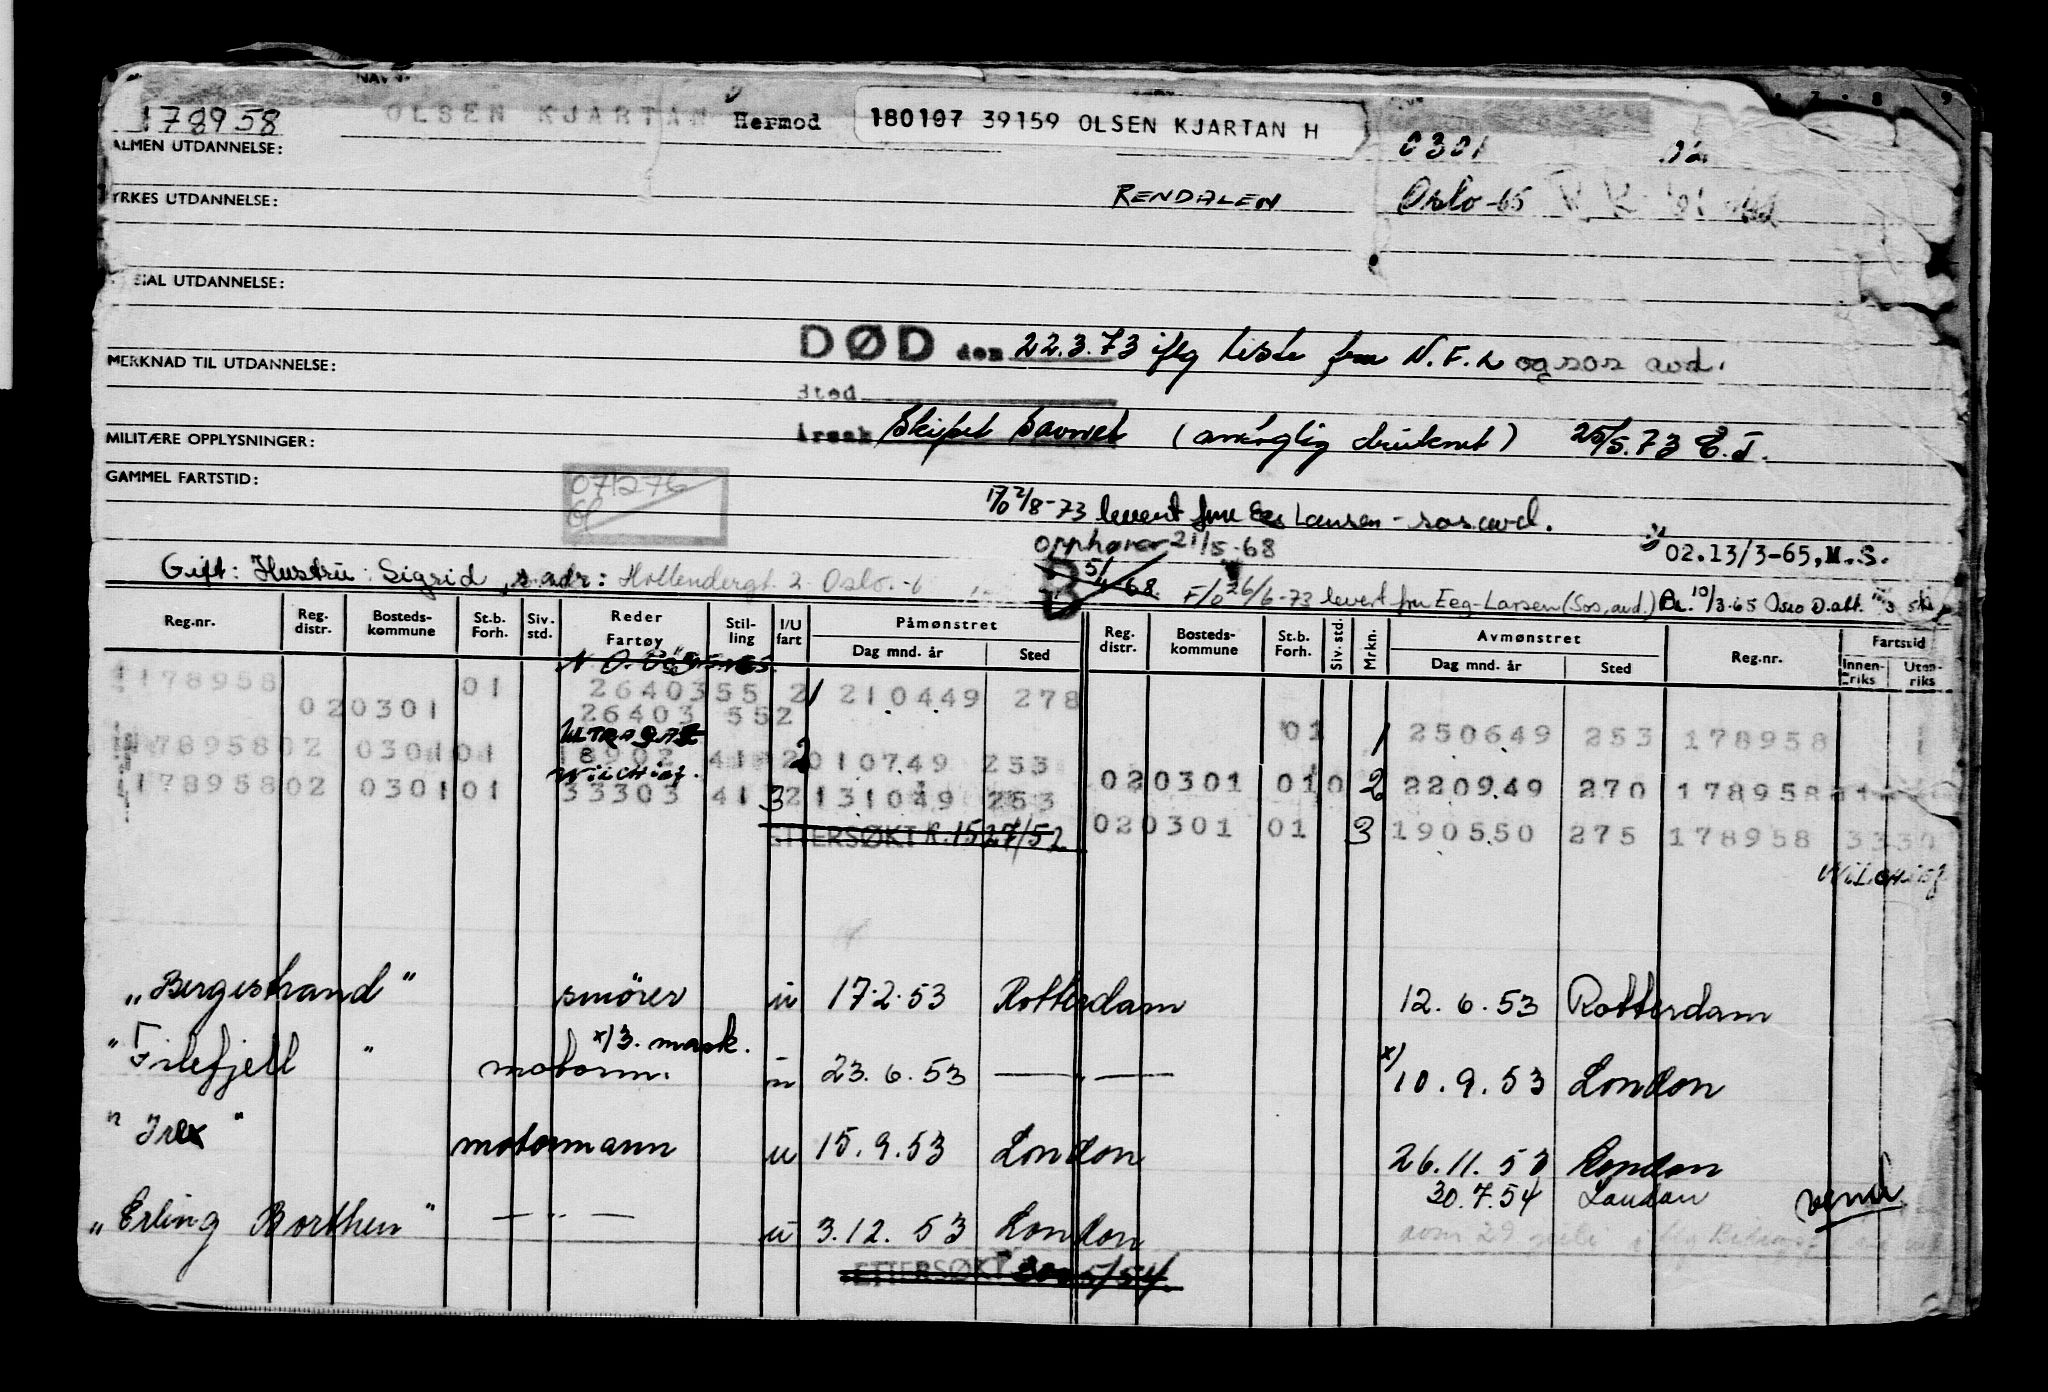 178958 OLSEN KJARTAN Hermod 180107 39159 OLSEN KJARTAN H 0301
ALMEN UTDANNELSE:
YRKES UTDANNELSE: RENDALEN Oslo-65
SIAL UTDANNELSE:
DØD den 22.3.73 iflg liste fra N.F.L og sos avd.
MERKNAD TIL UTDANNELSE:
Sted
Årsak Skipet savnet (antaglig druknet) 25/5.73 E.J.
MILITÆRE OPPLYSNINGER:
GAMMEL FARTSTID: 071276
2/8-73 levert fru Eeg Larsen - sos.avd.
opphører 21/5-68 02.13/3-65, M.S.
Gift: Hustru: Sigrid, s. adr: Hollendergt. 2 Oslo.-6 B 5/4-68 F/o 26/6-73 levert fru Eeg-Larsen (Sos.avd.) 10/3-65 Oslo
Reg.nr. Reg. distr. Bosteds-kommune St.b. Forh. Siv. std. Reder Fartøy Stil-ling I/U fart Påmønstret Dag mnd. år Sted Reg. distr. Bosteds-kommune St.b. Forh. Siv. std. Mrkn. Avmønstret Dag mnd. år Sted Reg.nr. Fartstid Innen-riks Uten-riks
178958 020301 01 2640355 2 1 210449 278
26403 552
ULTRAGAZ 01 1 250649 253 178958
178958 02 0301 01 18902 411 2 2 010749 253 020301 01 0 2 220949 270 178958
Wilchief.
178958 02 0301 01 33303 41 3 2 131049 253 020301 01 3 190550 275 178958 3330
ETTERSØKT R.1527/52 Wilchief
"Bergestrand" smører u 17.2.53 Rotterdam 12.6.53 Rotterdam
x) 3. mask.
"Filefjell" motorm. u 23.6.53 — " — x) 10.9.53 London
"Irex" motormann u 15.9.53 London 26.11.53 London
30.7.54 London vend
"Erling Borthen" — " — u 3.12.53 London
ETTERSØKT 5/54